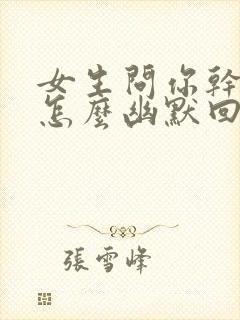 女生問你幹
怎麼幽默回
張雪峰